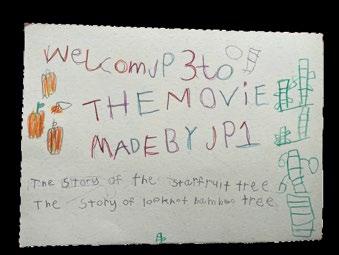 WelcomJP3to
THE MOViE
MADE BY JP1
The Story of the starfruit tree
The Story of 100knot bamboo tree